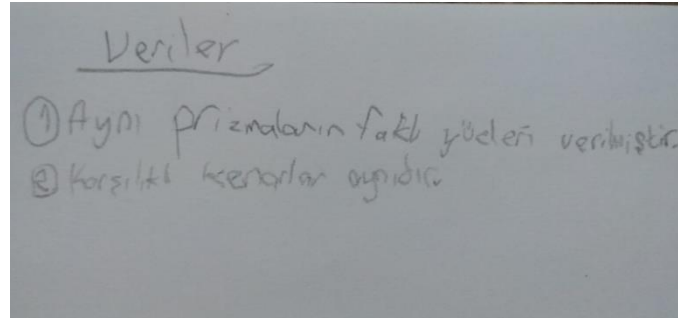 Veriler
① Aynı prizmaların faklı yüzleri verilmiştir.
② Karşılıklı kenarlar aynıdır.